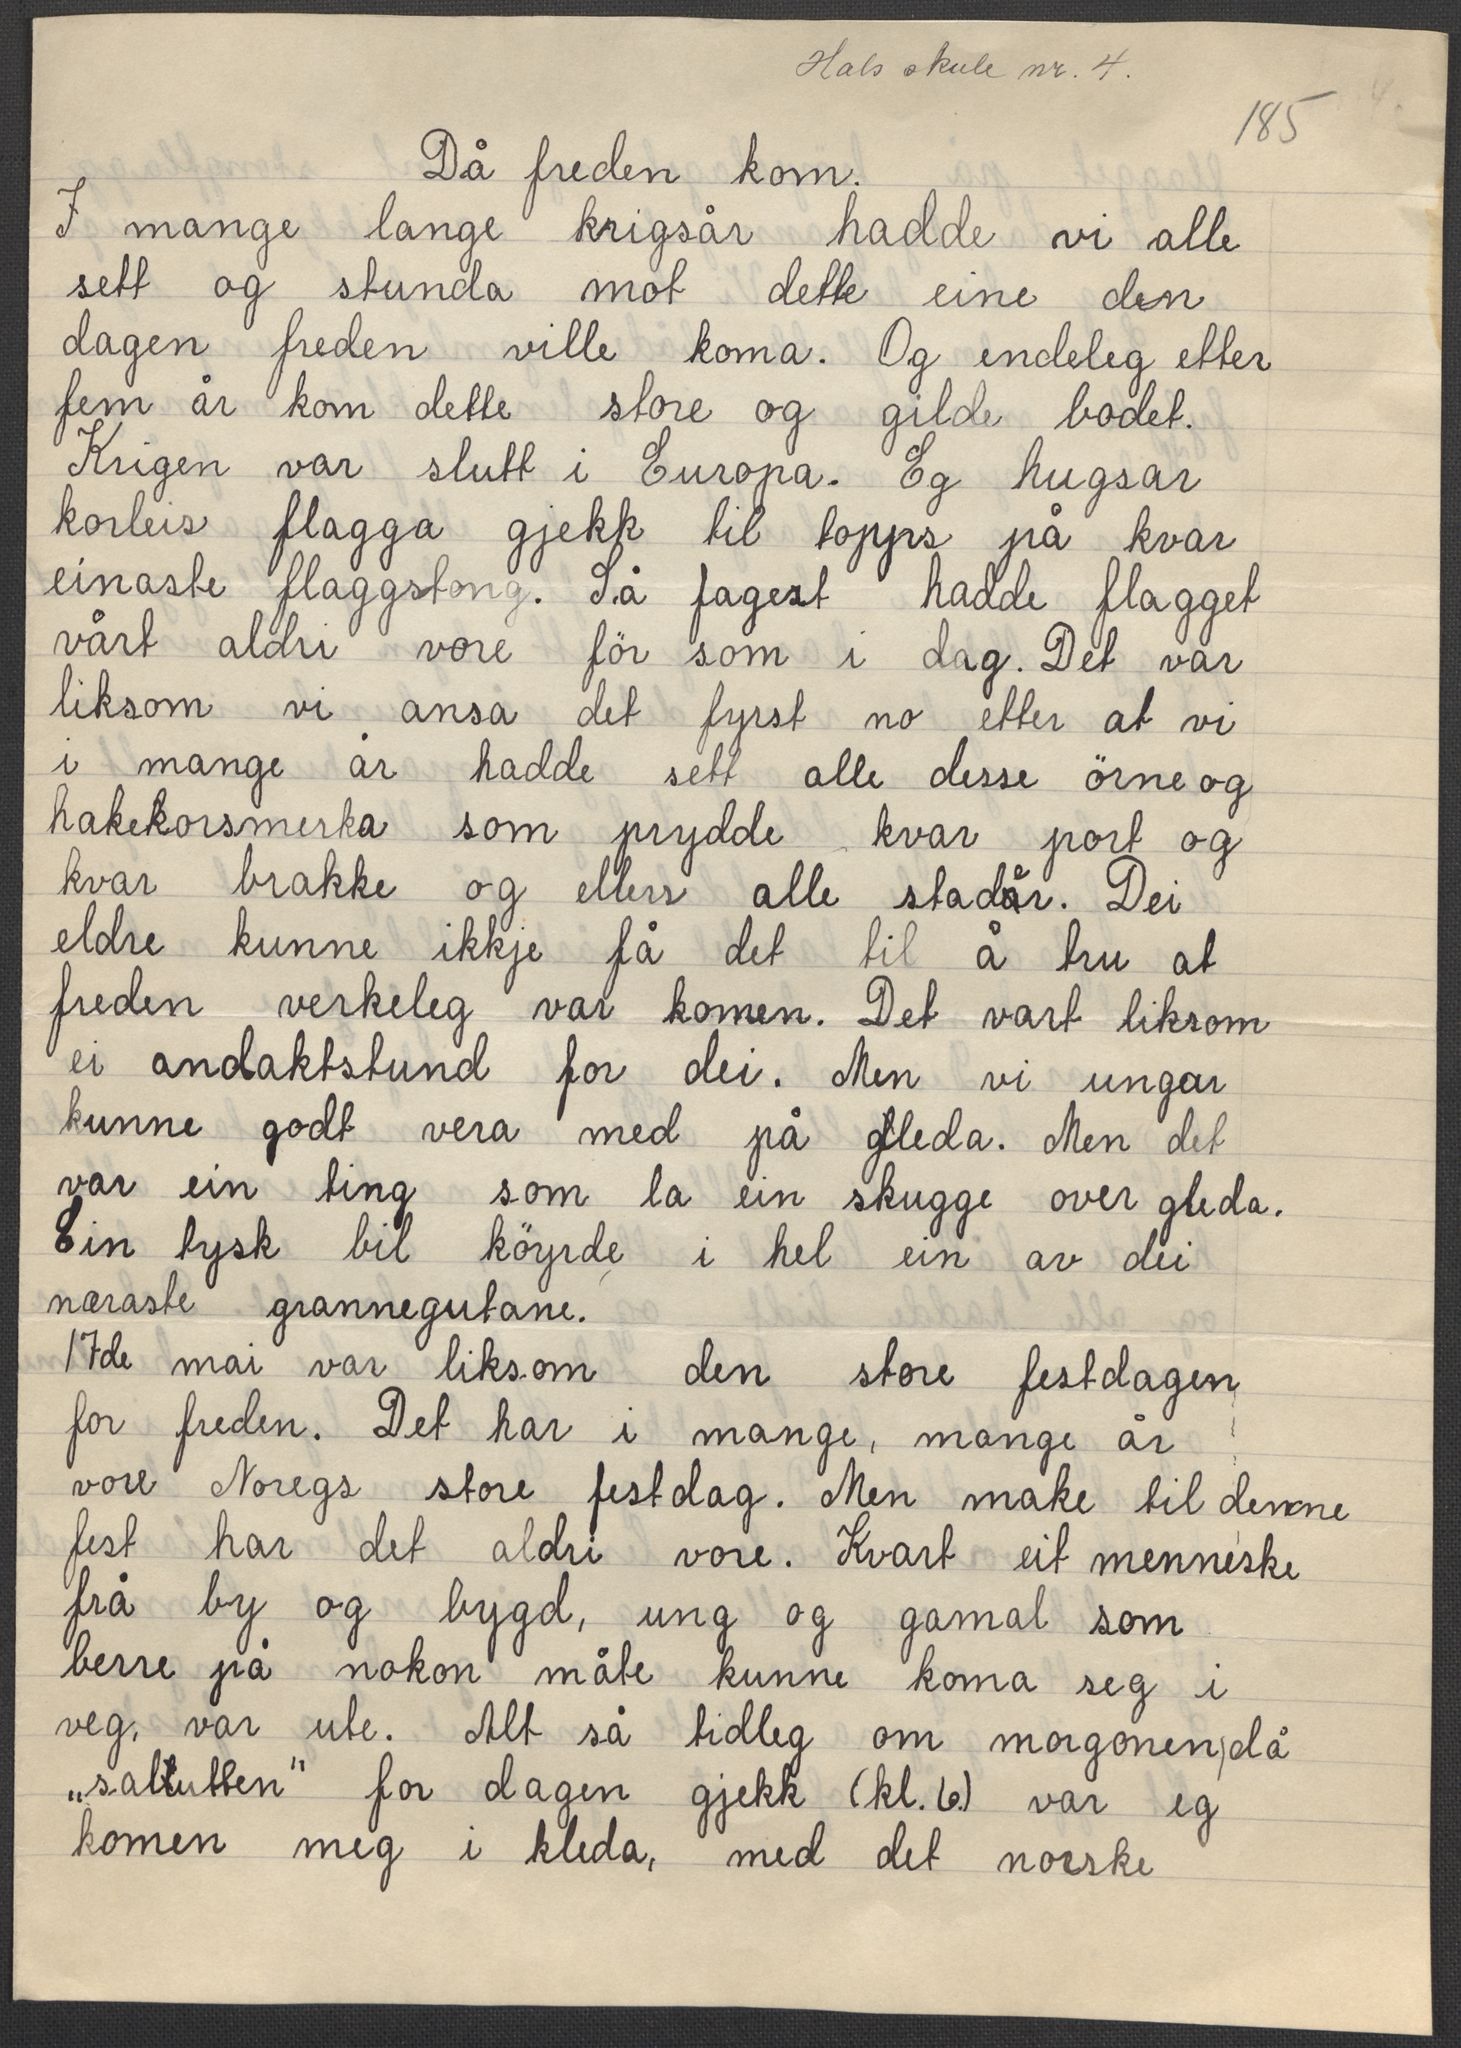 Hals skule nr. 4.
185
Då freden kom.
I mange lange krigsår hadde vi alle
sett og stunda mot dette eine den
dagen freden ville koma. Og endeleg etter
fem år kom dette store og gilde bodet.
Krigen var slutt i Europa. Eg hugsar
korleis flagga gjekk til topps på kvar
einaste flaggstong. Så fagert hadde flagget
vårt aldri vore för som i dag. Det var
liksom vi ansa det fyrst no etter at vi
i mange år hadde sett alle desse örne og
hakekorsmerka som prydde kvar port og
kvar brakke og ellers alle stadar. Dei
eldre kunne ikkje få det til å tru at
freden verkeleg var komen. Det vart liksom
ei andaktstund for dei. Men vi ungar
kunne godt vera med på gleda. Men det
var ein ting som la ein skugge over gleda.
Ein tysk bil köyrde i hel ein av dei
næraste grannegutane.
17de mai var liksom den store festdagen
for freden. Det har i mange, mange år
vore Noregs store festdag. Men make til denne
fest har det aldri vore. Kvart eit menneske
frå by og bygd, ung og gamal som
berre på nokon måte kunne koma seg i
veg, var ute. Alt så tidleg om morgonen, då
„salutten" for dagen gjekk (kl. 6.) var eg
komen meg i kleda, med det norske